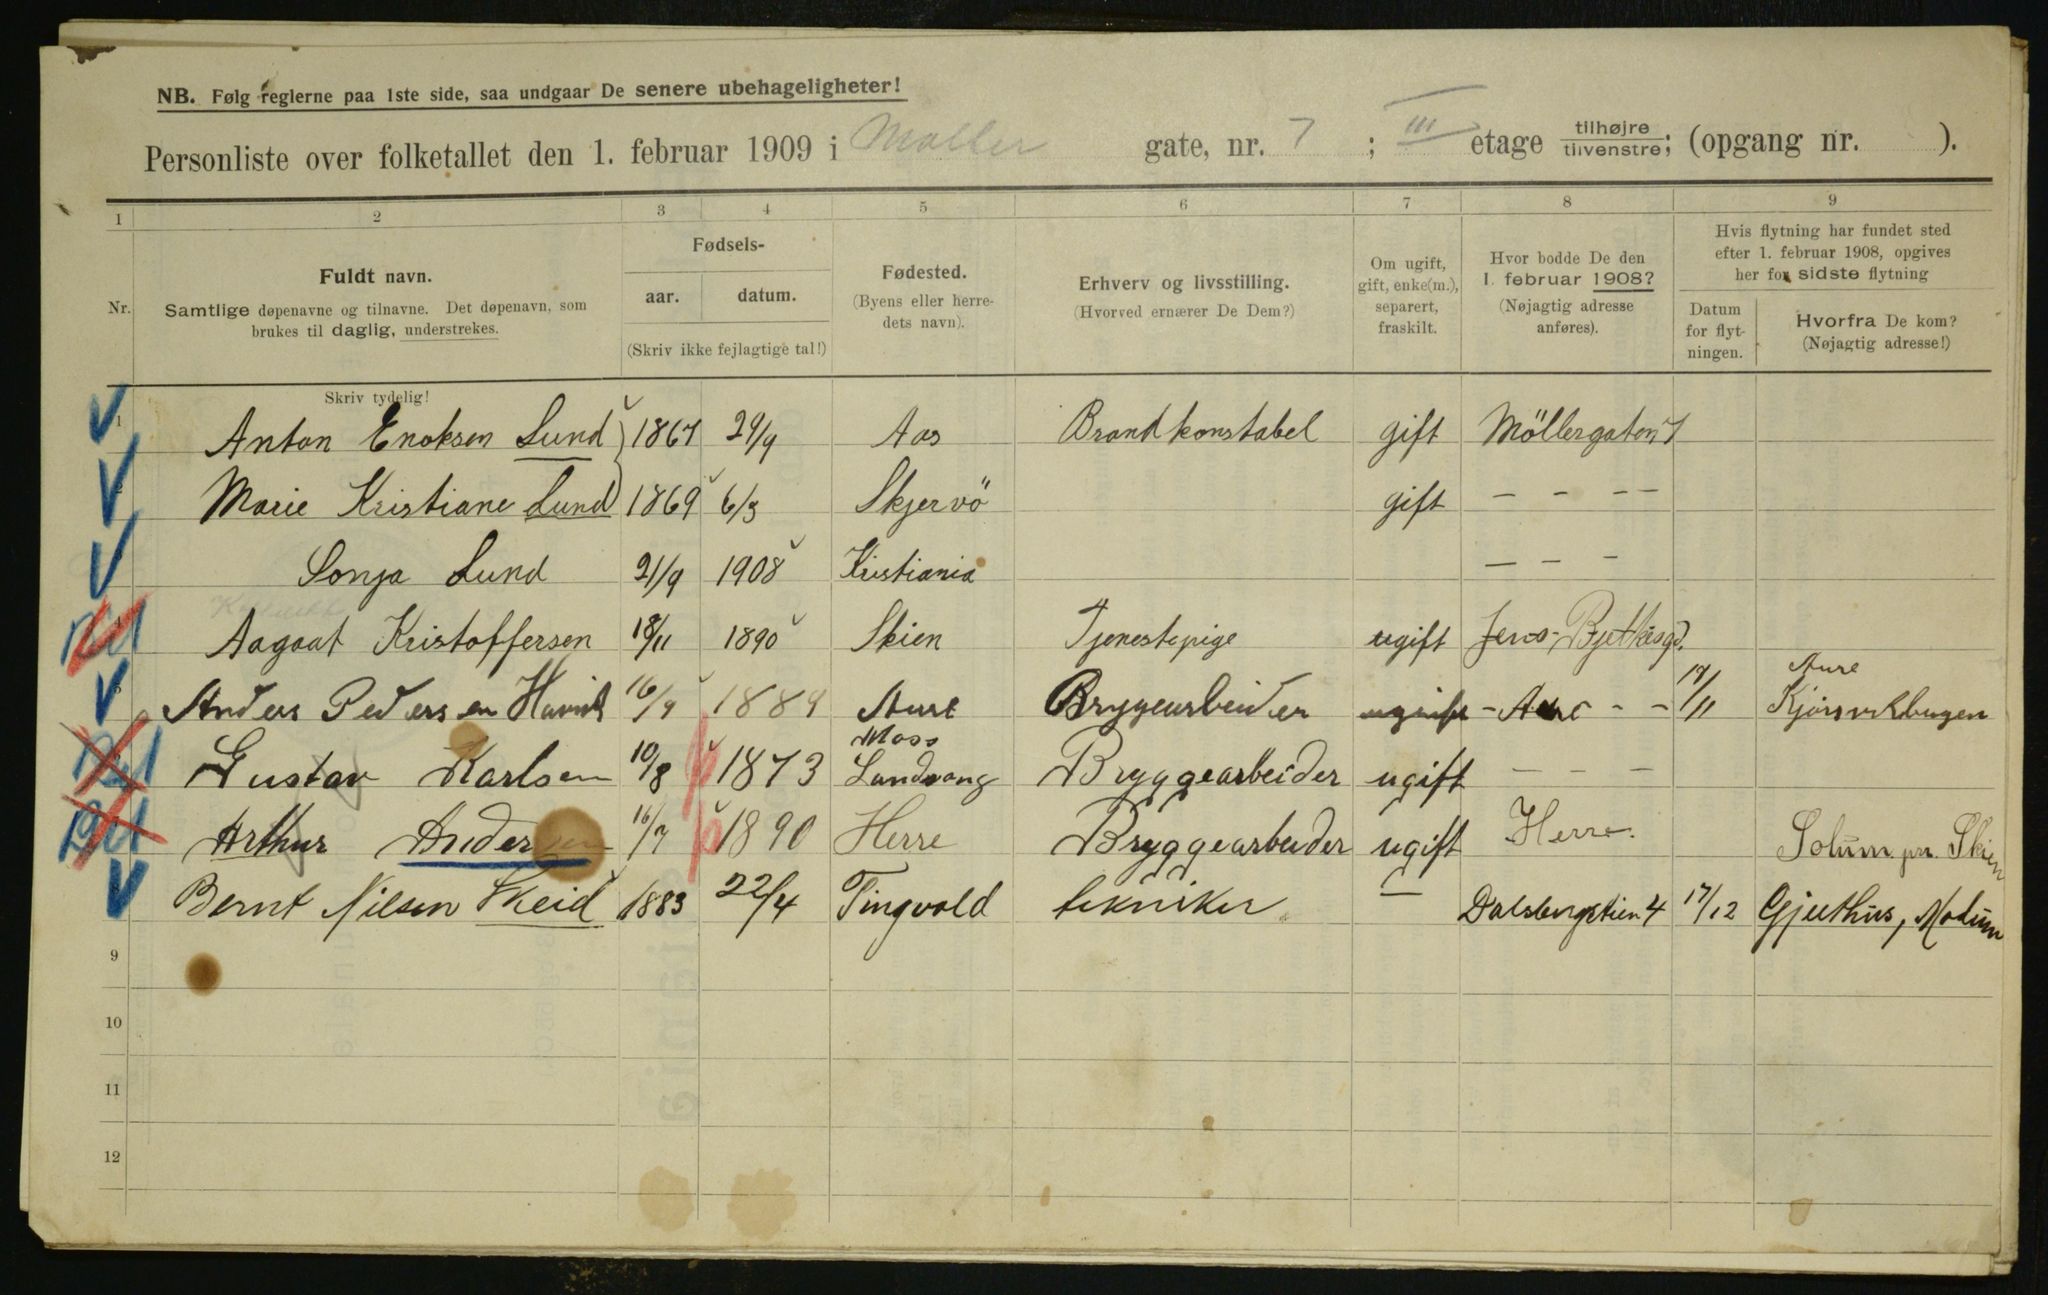 NB. Følg reglerne paa 1ste side, saa undgaar De senere ubehageligheter!
Personliste over folketallet den 1. februar 1909 i Møller gate, nr. 7 ; III etage tilhøjre tilvenstre; (opgang nr. ).
1 2 3 4 5 6 7 8 9
Nr.
Fuldt navn.
Samtlige døpenavne og tilnavne. Det døpenavn, som
brukes til daglig, understrekes.
Fødsels-
aar. datum.
(Skriv ikke fejlagtige tal!)
Fødested.
(Byens eller herre-
dets navn).
Erhverv og livsstilling.
(Hvorved ernærer De Dem?)
Om ugift,
gift, enke(m.),
separert,
fraskilt.
Hvor bodde De den
1. februar 1908?
(Nøjagtig adresse
anføres).
Hvis flytning har fundet sted
efter 1. februar 1908, opgives
her for sidste flytning
Datum
for flyt-
ningen.
Hvorfra De kom?
(Nøjagtig adresse!)
Skriv tydelig!
1 Anton Enoksen Lund 1867 29/9 Aas Brandkonstabel gift Möllergaten 7
2 Marie Kristiane Lund 1869 6/3 Skjervö gift — — — —
Sonja Lund 21/9 1908 Kristiania — — —
4 Aagaat Kristoffersen 18/11 1890 Skien Tjenestepige ugift Jens Bjelkesgd.
5 Anders Pedersen 16/9 1889 Aure Bryggearbeider ugift - Aure - - 19/11 Aure
Gustav Karlsen 10/8 1873 Moss Bryggearbeider ugift — — —
Arthur Andersen 16/7 1890 Herre Bryggearbeider ugift Herre. Solum pr. Skien
Bernt Nilsen Skeid 1883 22/4 Tingvold tekniker — Dalsbergstien 4 17/12 Gjeithus, Modum
9
10
11
12